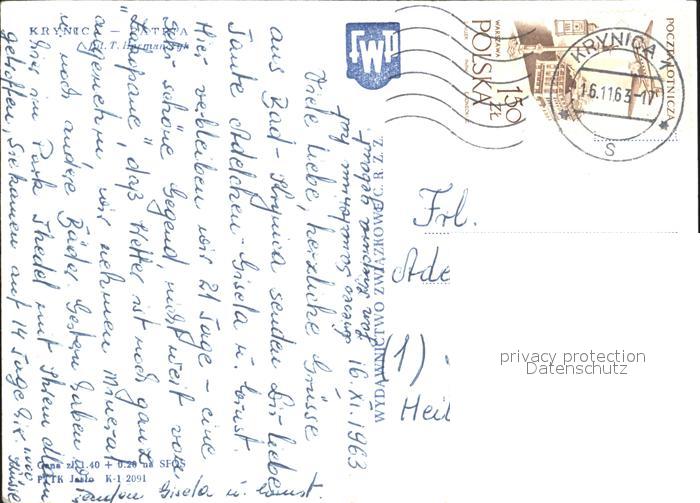 KRYNICA — PATRIA
Fot. T. Hermańczyk
FWP
POCZTA LOTNICZA
WARSZAWA
POLSKA
1,50 ZŁ
KRYNICA
16.11.63-17
S
16. XI. 1963
Viele liebe, herzliche Grüsse
aus Bad-Krynica senden Dir liebe
Tante Adelchen Gisela u. Ernst.
Hier verbleiben wir 21 Tage – eine
sehr schöne Gegend, nicht weit von
"Zakopane", das Wetter ist noch ganz
angenehm, wir nehmen Mineral
u. noch andere Bäder. Gestern haben
wir im Park Thedel mit Ihrem Mann
getroffen, Sie kamen auf 14 Tage
Grüsse
senden Gisela u. Ernst.
WYDAWNICTWO ZWIĄZKOWE C. R. Z. Z.
Frl.
Ade
(1)
Heil
privacy protection
Datenschutz
Cena zł 1.40 + 0.20 na SFOS
PTTK Jasło K-1 2091